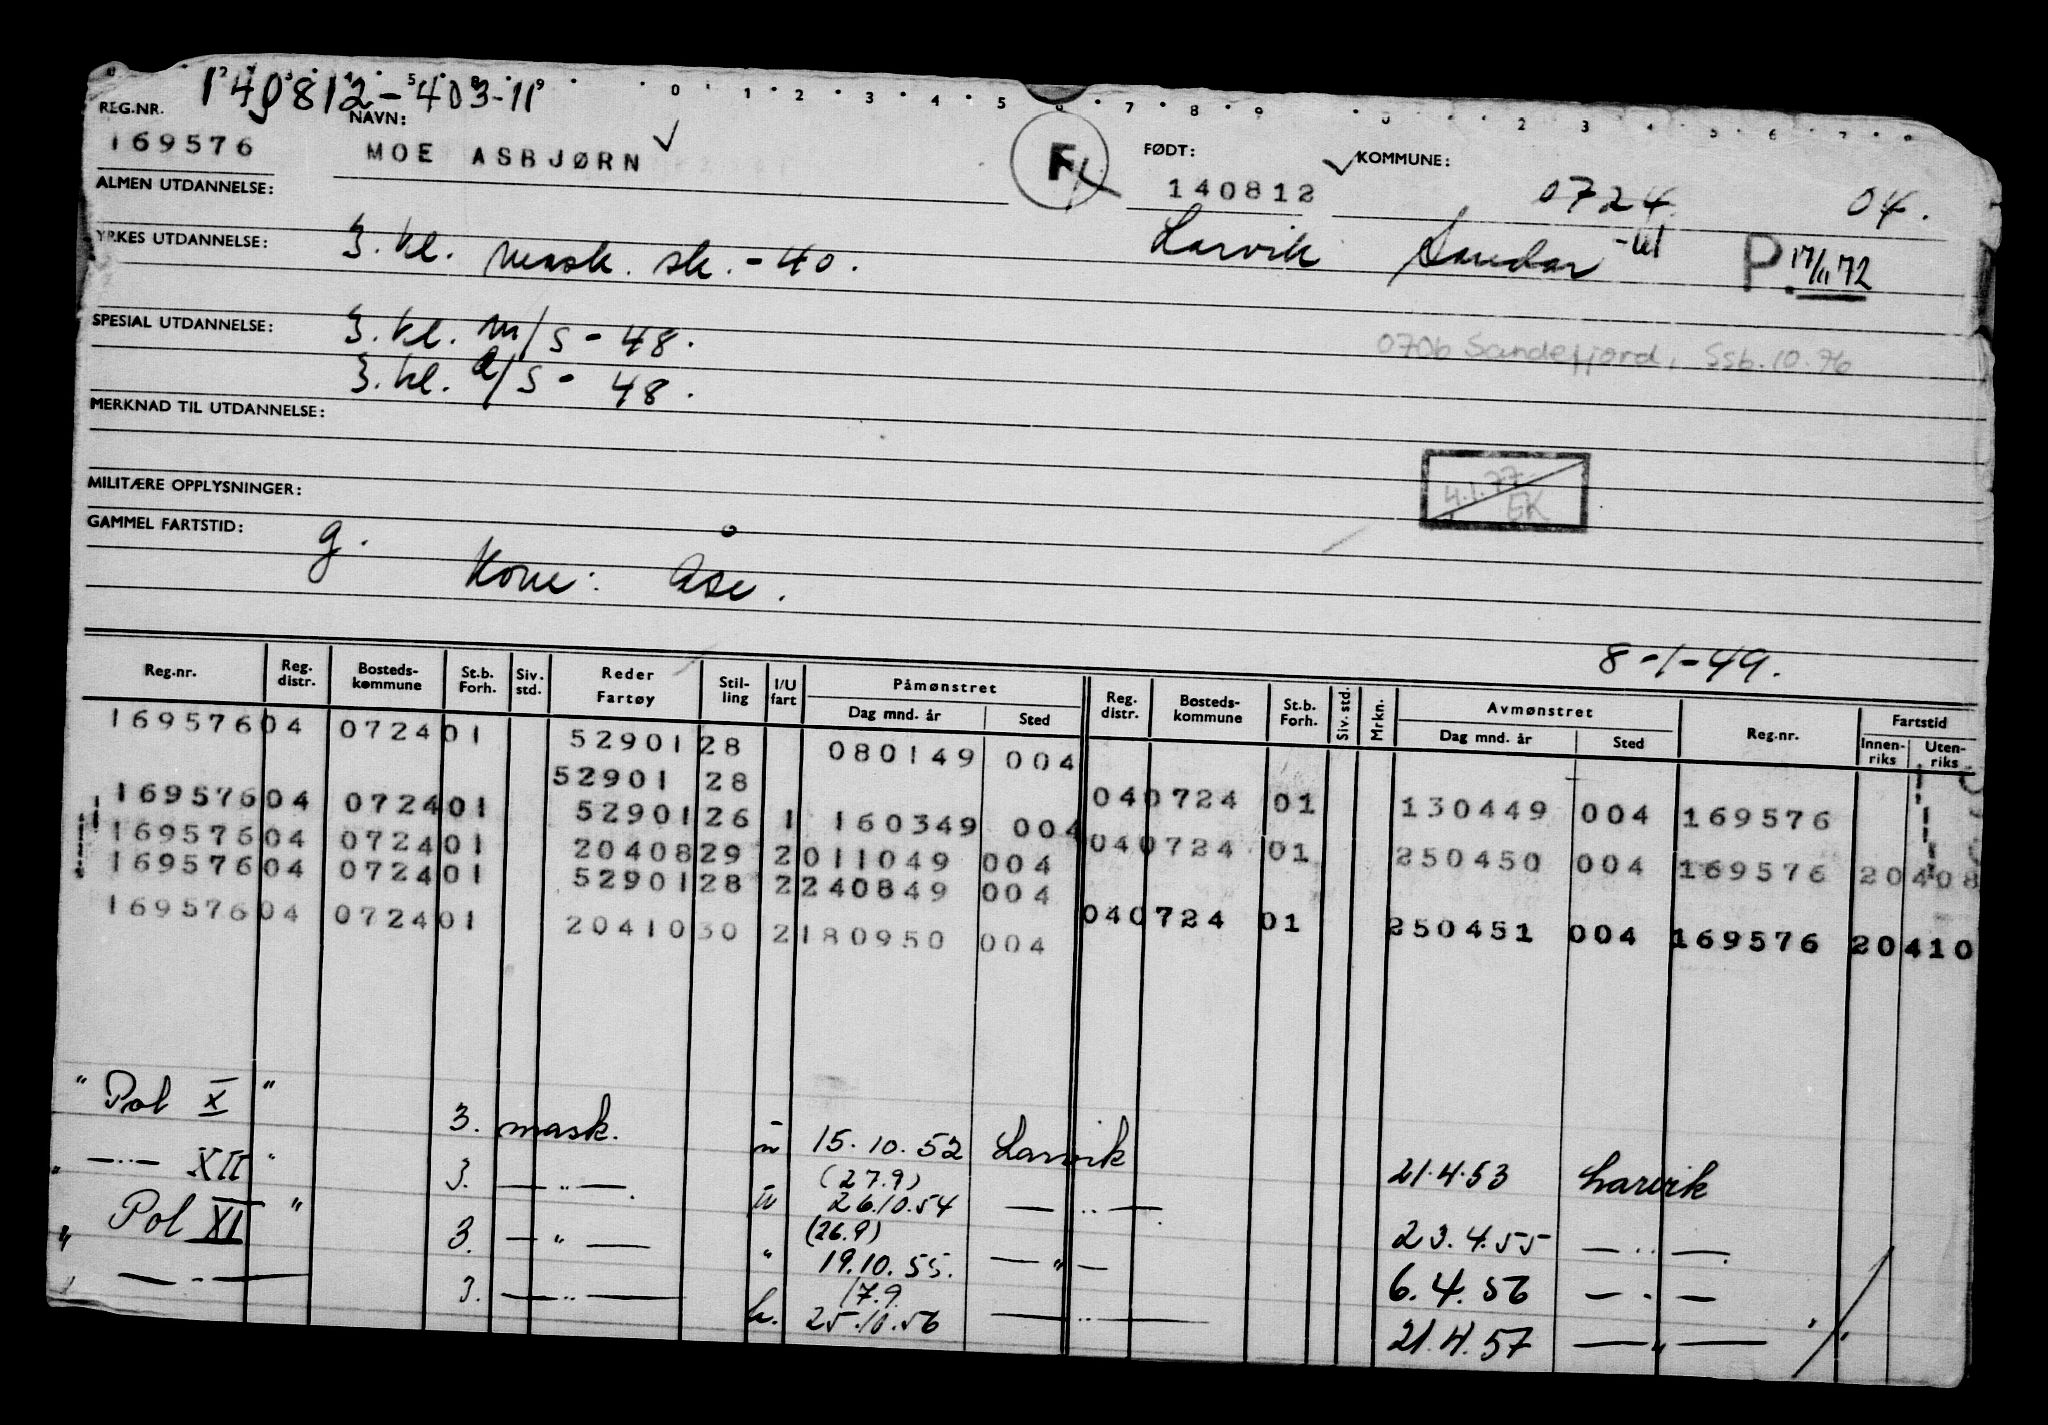 140812-403-11
0 1 2 3 4 5 6 7 8 9
REG.NR. NAVN: FØDT: KOMMUNE:
169576 MOE ASBJØRN F 140812 0724 04.
ALMEN UTDANNELSE:
YRKES UTDANNELSE: 3. kl. mask. sk. - 40. Larvik Sandar P. 17/11 72
SPESIAL UTDANNELSE: 3. kl. m/s - 48.
0706 Sandefjord, Ssb. 10.76
3. kl. d/s - 48.
MERKNAD TIL UTDANNELSE:
4.1.77 EK
MILITÆRE OPPLYSNINGER:
GAMMEL FARTSTID: g. Kone: Åse.
8-1-49.
Reg.nr. Reg. distr. Bosteds- kommune St.b. Forh. Siv. std. Reder Fartøy Stil- ling I/U fart Påmønstret Dag mnd. år Sted Reg. distr. Bosteds- kommune St.b. Forh. Siv. std. Mrkn. Avmønstret Dag mnd. år Sted Reg.nr. Fartstid Innen- riks Uten- riks
169576 04 0724 01 52901 28 080149 004
52901 28 04 0724 01 130449 004 169576
169576 04 0724 01 52901 26 1 160349 004
169576 04 0724 01 20408 29 2 011049 004 04 0724 01 250450 004 169576 20408
169576 04 0724 01 52901 28 2 240849 004
169576 04 0724 01 20410 30 2 180950 004 04 0724 01 250451 004 169576 20410
" Pol X " 3. mask. u 15.10.52 Larvik 21.4.53 Larvik
" —..— XII " 3. —..—. u (27.9) 26.10.54 —..—. 23.4.55 —..—.
" Pol XI " 3. — " — " (26.9) 19.10.55. — " — 6.4.56 — . —
—.— 3. —..— 17.9 25.10.56 —..— 21.4.57 — " —